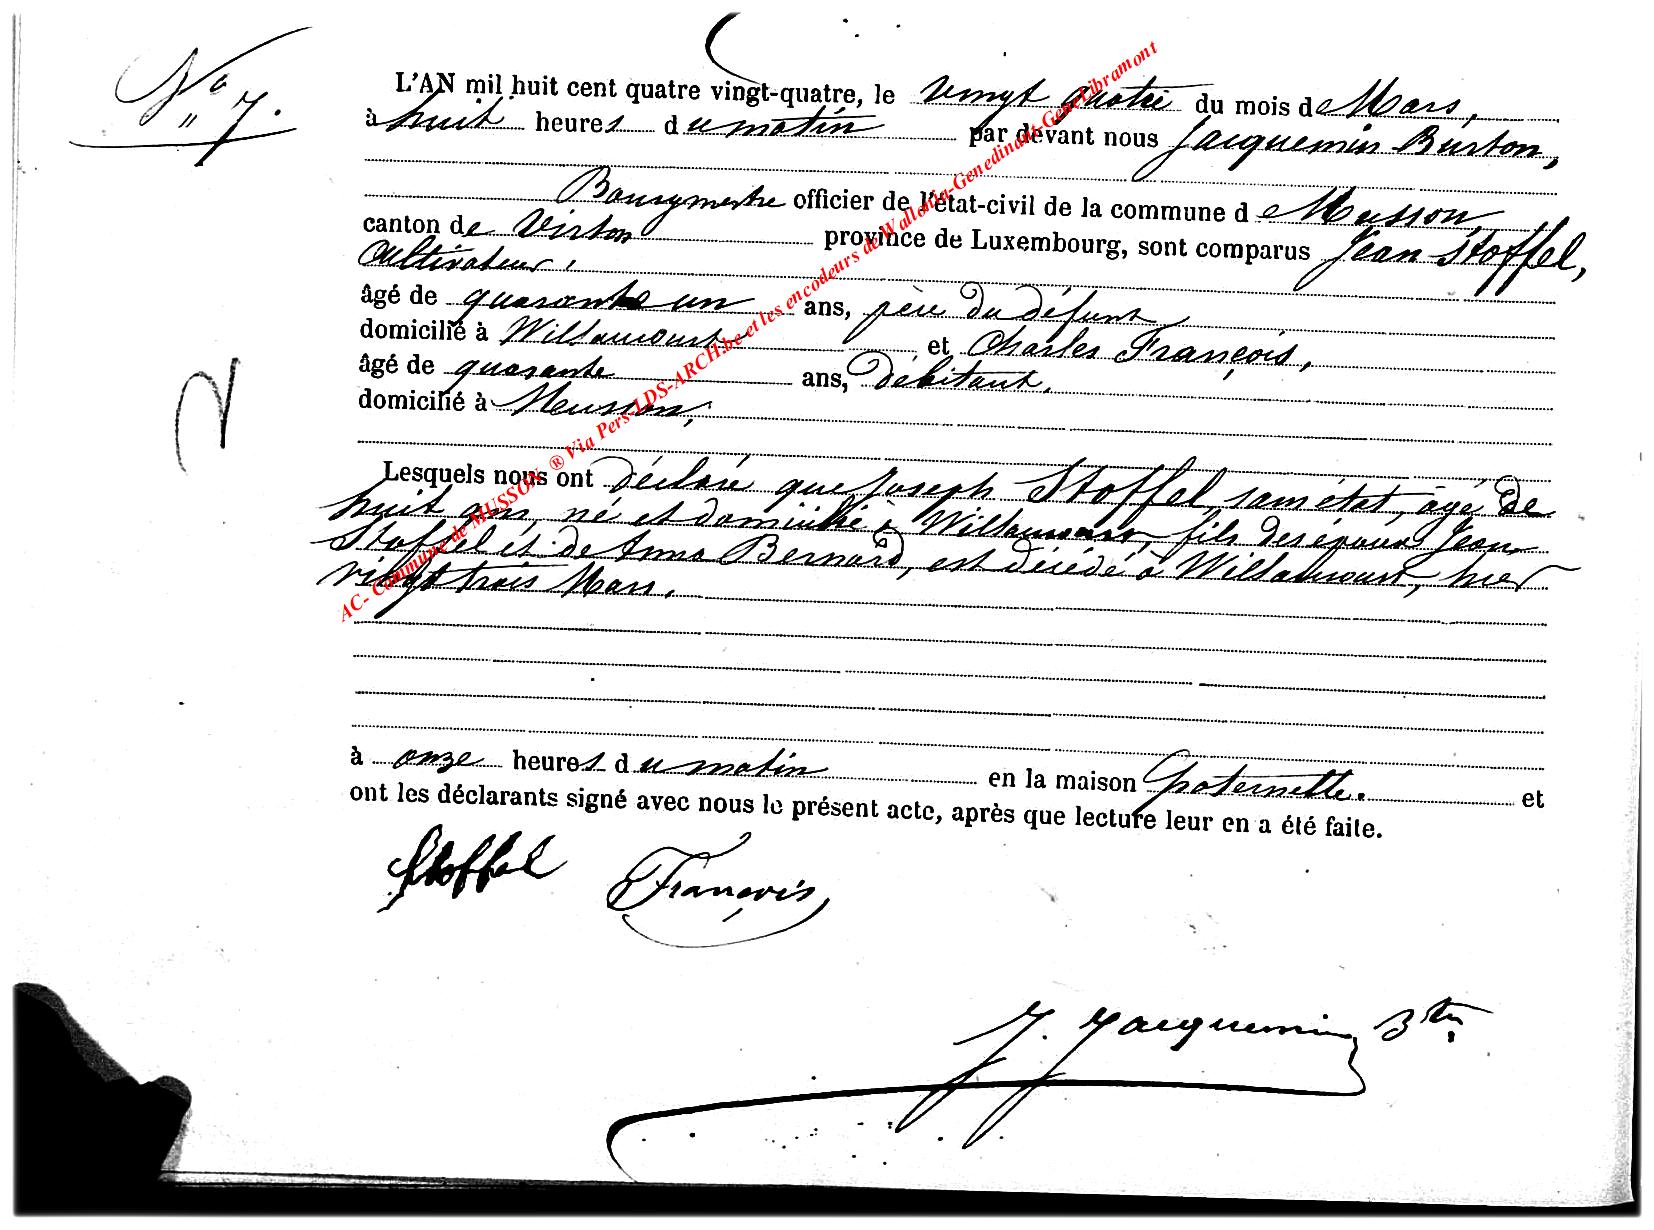 N° 7.
L'AN mil huit cent quatre vingt-quatre, le vingt quatre du mois de Mars,
à huit heures du matin par devant nous Jacquemin Burton,
Bourgmestre officier de l'état-civil de la commune de Musson
canton de Virton province de Luxembourg, sont comparus Jean Stoffel,
Cultivateur,
âgé de quarante un ans, père du défunt
domicilié à Willancourt et Charles François,
âgé de quarante ans, débitant,
domicilié à Musson,
Lesquels nous ont déclaré que Joseph Stoffel, sans état, âgé de
huit ans, né et domicilié à Willancourt, fils des époux Jean
Stoffel et de Anna Bernard, est décédé à Willancourt, hier
vingt trois Mars,
à onze heures du matin en la maison paternelle. et
ont les déclarants signé avec nous le présent acte, après que lecture leur en a été faite.
Stoffel François
J. Jacquemin Btn
AC- Commune de MUSSON ® Via Pers-LDS-ARCH.be et les encodeurs de Wallonia-Genedinant-GeneLibramont